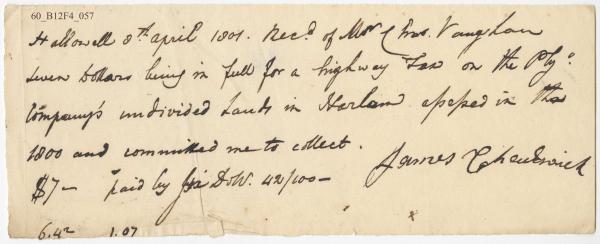 60_B12F4_057
Hallowell 8th april 1801. Recd. of Mr Chas. Vaughan
seven Dollars being in full for a highway Tax on the Plyo.
Company's undivided Lands in Harlem assessed in the
1800 and committed me to collect.
James Chadwick
$7— paid by Dolls. 42/100—
6.42 1.07